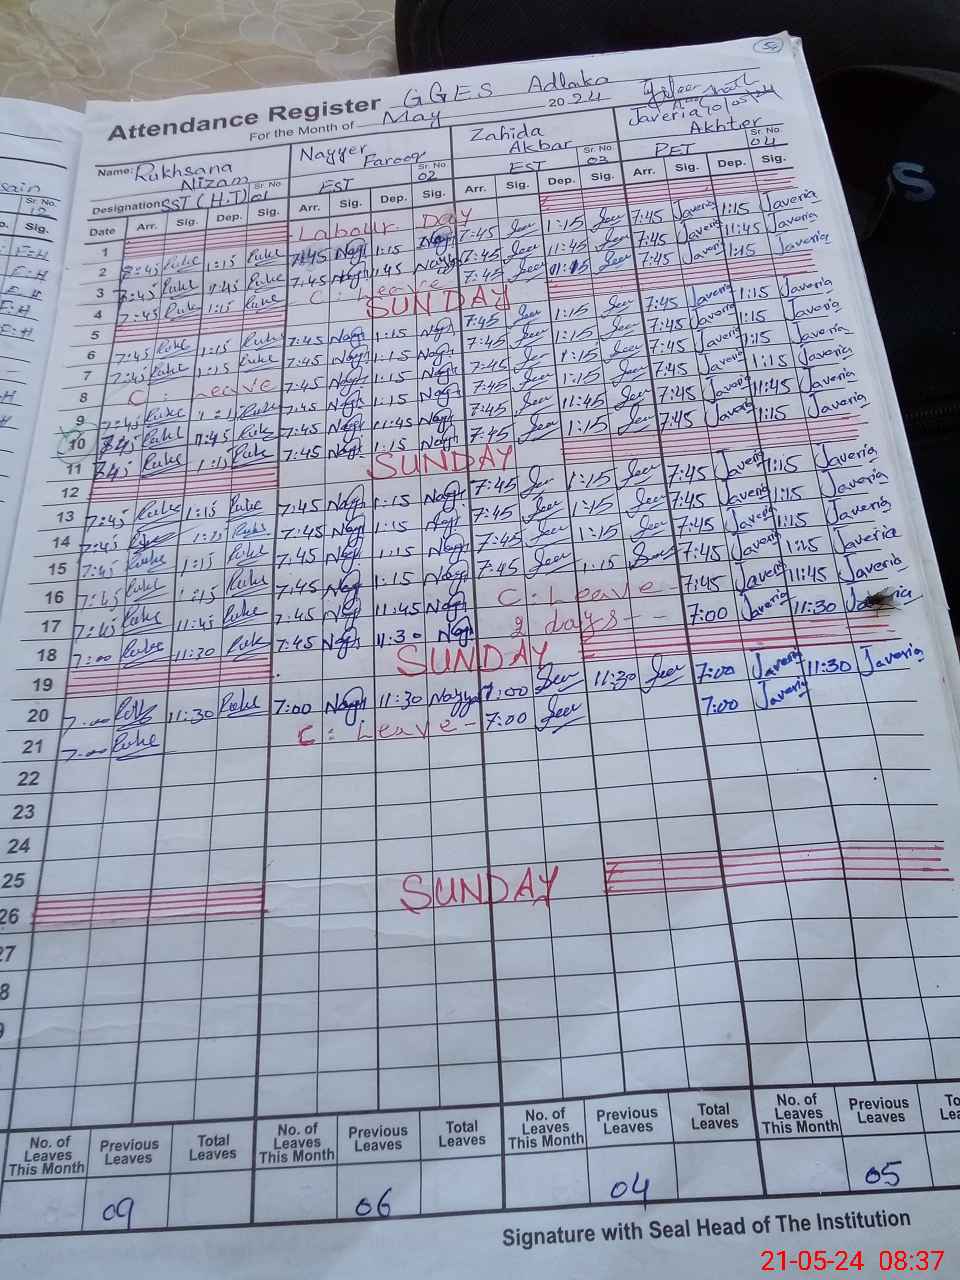 54
Attendance Register GGES Adlaka
For the Month of May 2024
Name: Rukhsana Nizam Nayyer Farooq Zahida Akbar Javeria Akhter
Sr. No. 01 Sr. No. 02 Sr. No. 03 Sr. No. 04
Designation SST (H.T) EST EST PET
Date Arr. Sig. Dep. Sig. Arr. Sig. Dep. Sig. Arr. Sig. Dep. Sig. Arr. Sig. Dep. Sig.
1 Labour Day
2 7:45 Ruke 1:15 Ruke 7:45 Nayy 1:15 Nayy 7:45 1:15 7:45 Javeria 1:15 Javeria
3 7:45 Ruke 11:45 Ruke 7:45 Nayy 11:45 Nayy 7:45 11:45 7:45 Javeria 11:45 Javeria
4 7:45 Ruke 1:15 Ruke C: Leave 7:45 7:45 Javeria 1:15 Javeria
5 SUNDAY
6 7:45 Ruke 1:15 Ruke 7:45 Nayy 1:15 Nayy 7:45 1:15 7:45 Javeria 1:15 Javeria
7 7:45 Ruke 1:15 Ruke 7:45 Nayy 1:15 Nayy 7:45 1:15 7:45 Javeria 1:15 Javeria
8 C: Leave 7:45 Nayy 1:15 Nayy 7:45 1:15 7:45 Javeria 1:15 Javeria
9 7:45 Ruke Ruke 7:45 Nayy 1:15 Nayy 7:45 1:15 7:45 Javeria 1:15 Javeria
10 7:45 Ruke 11:45 Ruke 7:45 Nayy 11:45 Nayy 7:45 11:45 7:45 Javeria 11:45 Javeria
11 7:45 Ruke 1:15 Ruke 7:45 Nayy 1:15 Nayy 7:45 1:15 7:45 Javeria 1:15 Javeria
12 SUNDAY
13 7:45 Ruke 1:15 Ruke 7:45 Nayy 1:15 Nayy 7:45 1:15 7:45 Javeria 1:15 Javeria
14 7:45 Ruke 1:15 Ruke 7:45 Nayy 1:15 Nayy 7:45 1:15 7:45 Javeria 1:15 Javeria
15 7:45 Ruke 1:15 Ruke 7:45 Nayy 1:15 Nayy 7:45 1:15 7:45 Javeria 1:15 Javeria
16 7:45 Ruke 1:15 Ruke 7:45 Nayy 1:15 Nayy 7:45 1:15 7:45 Javeria 1:15 Javeria
17 7:45 Ruke 11:45 Ruke 7:45 Nayy 11:45 Nayy C: Leave - 7:45 Javeria 11:45 Javeria
18 7:00 Ruke 11:30 Ruke 7:45 Nayy 11:30 Nayy 2 days - - 7:00 Javeria 11:30 Javeria
19 SUNDAY
20 7:00 Ruke 11:30 Ruke 7:00 Nayy 11:30 Nayy 7:00 11:30 7:00 Javeria 11:30 Javeria
21 7:00 Ruke C: Leave - 7:00 7:00 Javeria
22
23
24
25
26 SUNDAY
27
8
9
No. of Leaves This Month Previous Leaves Total Leaves No. of Leaves This Month Previous Leaves Total Leaves No. of Leaves This Month Previous Leaves Total Leaves No. of Leaves This Month Previous Leaves
09 06 04 05
Signature with Seal Head of The Institution
21-05-24 08:37